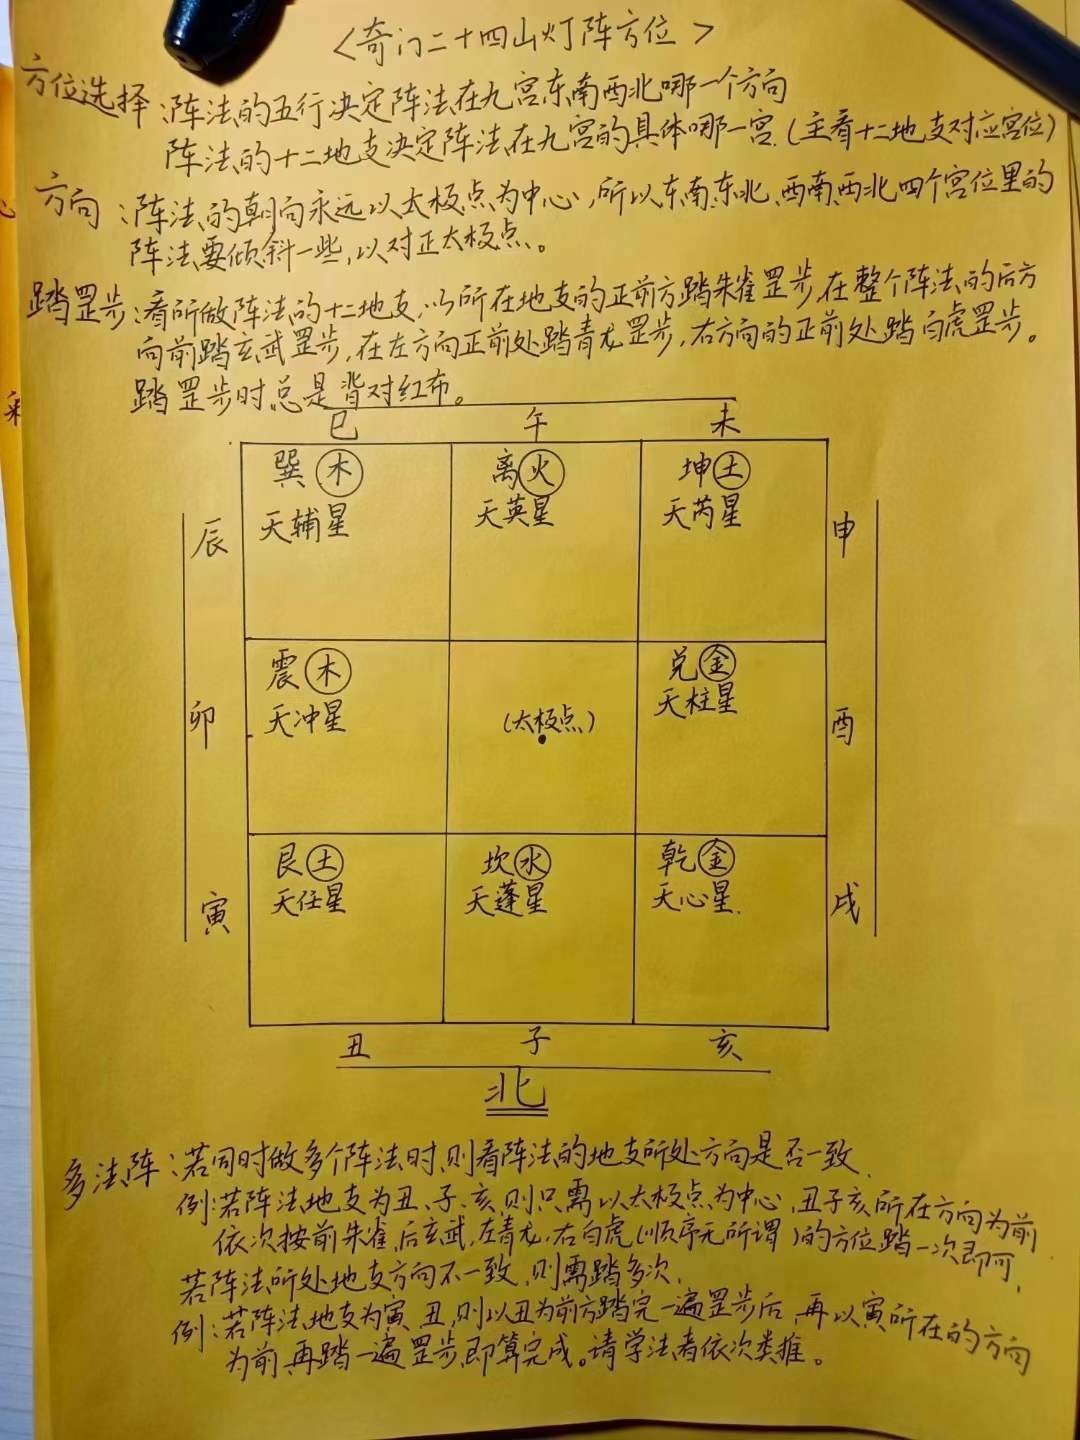 <奇门二十四山灯阵方位>
方位选择:阵法的五行决定阵法在九宫东南西北哪一个方向
阵法的十二地支决定阵法在九宫的具体哪一宫.(主看十二地支对应宫位)
方向:阵法的朝向永远以太极点为中心,所以东南、东北、西南、西北四个宫位里的
阵法要倾斜一些,以对正太极点。
踏罡步:看所做阵法的十二地支,以所在地支的正前方踏朱雀罡步,在整个阵法的后方
向前踏玄武罡步,在左方向正前处踏青龙罡步,右方向的正前处踏白虎罡步。
踏罡步时总是背对红布。
巳 午 未
巽 木 离 火 坤 土
天辅星 天英星 天芮星
辰 申
震 木 兑 金
天冲星 (太极点) 天柱星
卯 酉
艮 土 坎 水 乾 金
天任星 天蓬星 天心星.
寅 戌
丑 子 亥
北
多法阵:若同时做多个阵法时,则看阵法的地支所处方向是否一致.
例:若阵法地支为丑、子、亥,则只需以太极点为中心,丑子亥所在方向为前
依次按前朱雀,后玄武,左青龙,右白虎(顺序无所谓)的方位踏一次即可,
若阵法所处地支方向不一致,则需踏多次,
例:若阵法地支为寅、丑,则以丑为前方踏完一遍罡步后,再以寅所在的方向
为前,再踏一遍罡步,即算完成。请学法者依次类推。